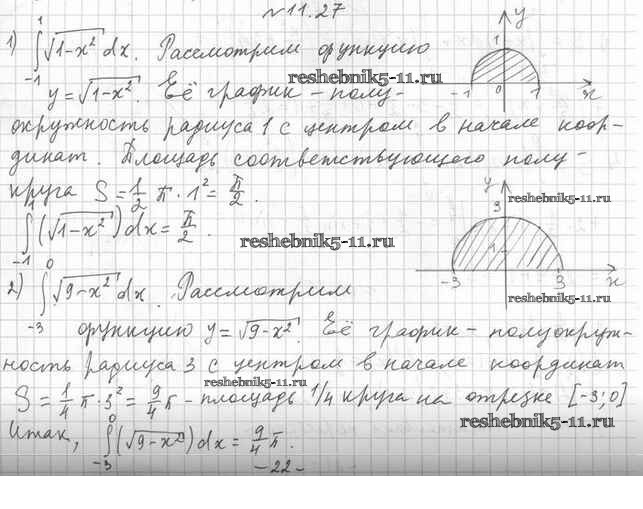 №11.27
1) ∫₋₁¹ √(1-x²) dx. Рассмотрим функцию
y = √(1-x²). Её график - полу-
окружность радиуса 1 с центром в начале коор-
динат. Площадь соответствующего полу-
круга S = 1/2 π · 1² = π/2.
∫₋₁¹ (√(1-x²)) dx = π/2.
y
1
-1 0 1 x
reshebnik5-11.ru
reshebnik5-11.ru
2) ∫₋₃⁰ √(9-x²) dx. Рассмотрим
функцию y = √(9-x²). Её график - полуокруж-
ность радиуса 3 с центром в начале координат
S = 1/4 π · 3² = 9/4 π - площадь 1/4 круга на отрезке [-3; 0]
Итак, ∫₋₃⁰ (√(9-x²)) dx = 9/4 π.
y
3
1
-3 3 x
reshebnik5-11.ru
reshebnik5-11.ru
reshebnik5-11.ru
reshebnik5-11.ru
-22-